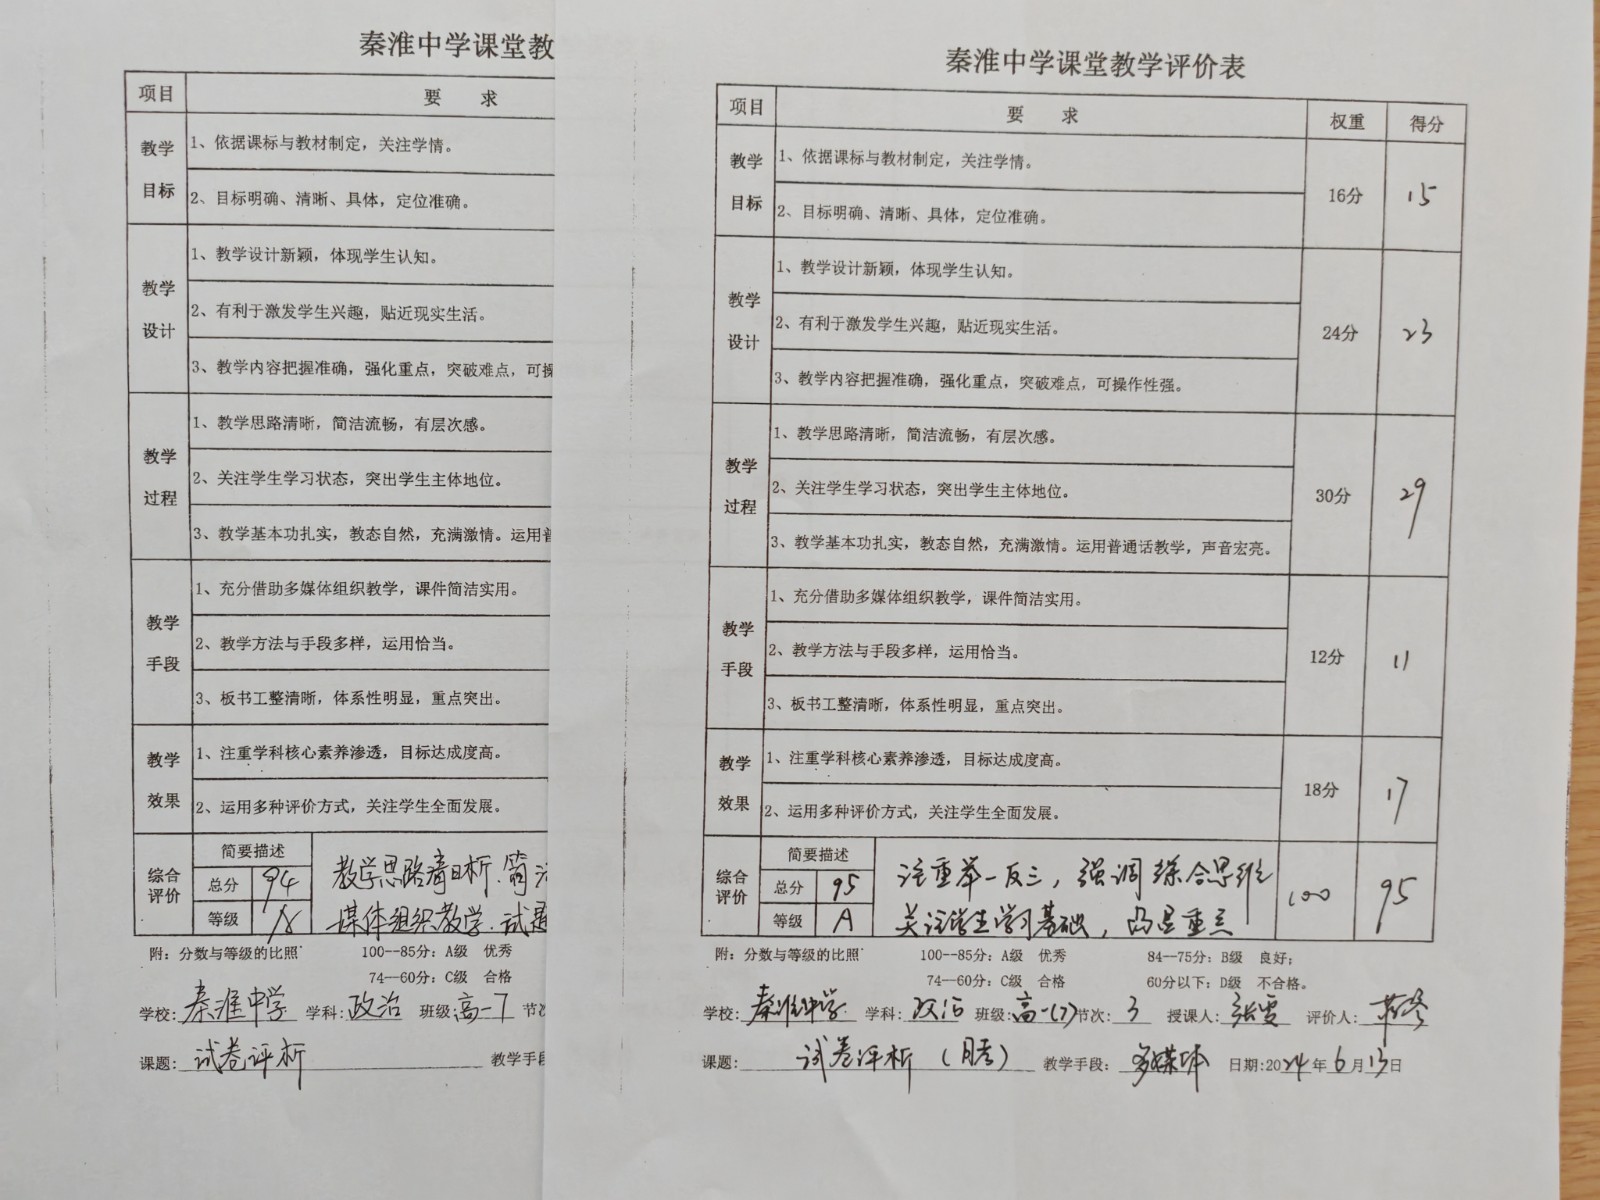 秦淮中学课堂教
项目 要 求
教学目标
1、依据课标与教材制定，关注学情。
2、目标明确、清晰、具体，定位准确。
教学设计
1、教学设计新颖，体现学生认知。
2、有利于激发学生兴趣，贴近现实生活。
3、教学内容把握准确，强化重点，突破难点，可操
教学过程
1、教学思路清晰，简洁流畅，有层次感。
2、关注学生学习状态，突出学生主体地位。
3、教学基本功扎实，教态自然，充满激情。运用普
教学手段
1、充分借助多媒体组织教学，课件简洁实用。
2、教学方法与手段多样，运用恰当。
3、板书工整清晰，体系性明显，重点突出。
教学效果
1、注重学科核心素养渗透，目标达成度高。
2、运用多种评价方式，关注学生全面发展。
综合评价
简要描述
总分 94
等级 A
教学思路清晰、简洁
媒体组织教学、试题
附：分数与等级的比照 100--85分：A级 优秀
74--60分：C级 合格
学校：秦淮中学 学科：政治 班级 高一7 节次
课题：试卷评析 教学手段
秦淮中学课堂教学评价表
项目 要 求 权重 得分
教学目标
1、依据课标与教材制定，关注学情。
2、目标明确、清晰、具体，定位准确。
16分 15
教学设计
1、教学设计新颖，体现学生认知。
2、有利于激发学生兴趣，贴近现实生活。
3、教学内容把握准确，强化重点，突破难点，可操作性强。
24分 23
教学过程
1、教学思路清晰，简洁流畅，有层次感。
2、关注学生学习状态，突出学生主体地位。
3、教学基本功扎实，教态自然，充满激情。运用普通话教学，声音宏亮。
30分 29
教学手段
1、充分借助多媒体组织教学，课件简洁实用。
2、教学方法与手段多样，运用恰当。
3、板书工整清晰，体系性明显，重点突出。
12分 11
教学效果
1、注重学科核心素养渗透，目标达成度高。
2、运用多种评价方式，关注学生全面发展。
18分 17
综合评价
简要描述
总分 95
等级 A
注重举一反三，强调综合思维
关注学生学习基础，凸显重点
100 95
附：分数与等级的比照 100--85分：A级 优秀 84--75分：B级 良好；
74--60分：C级 合格 60分以下：D级 不合格。
学校：秦淮中学 学科：政治 班级：高一(7) 节次：3 授课人：张雯 评价人：
课题：试卷评析（月考） 教学手段：多媒体 日期：2024年6月13日